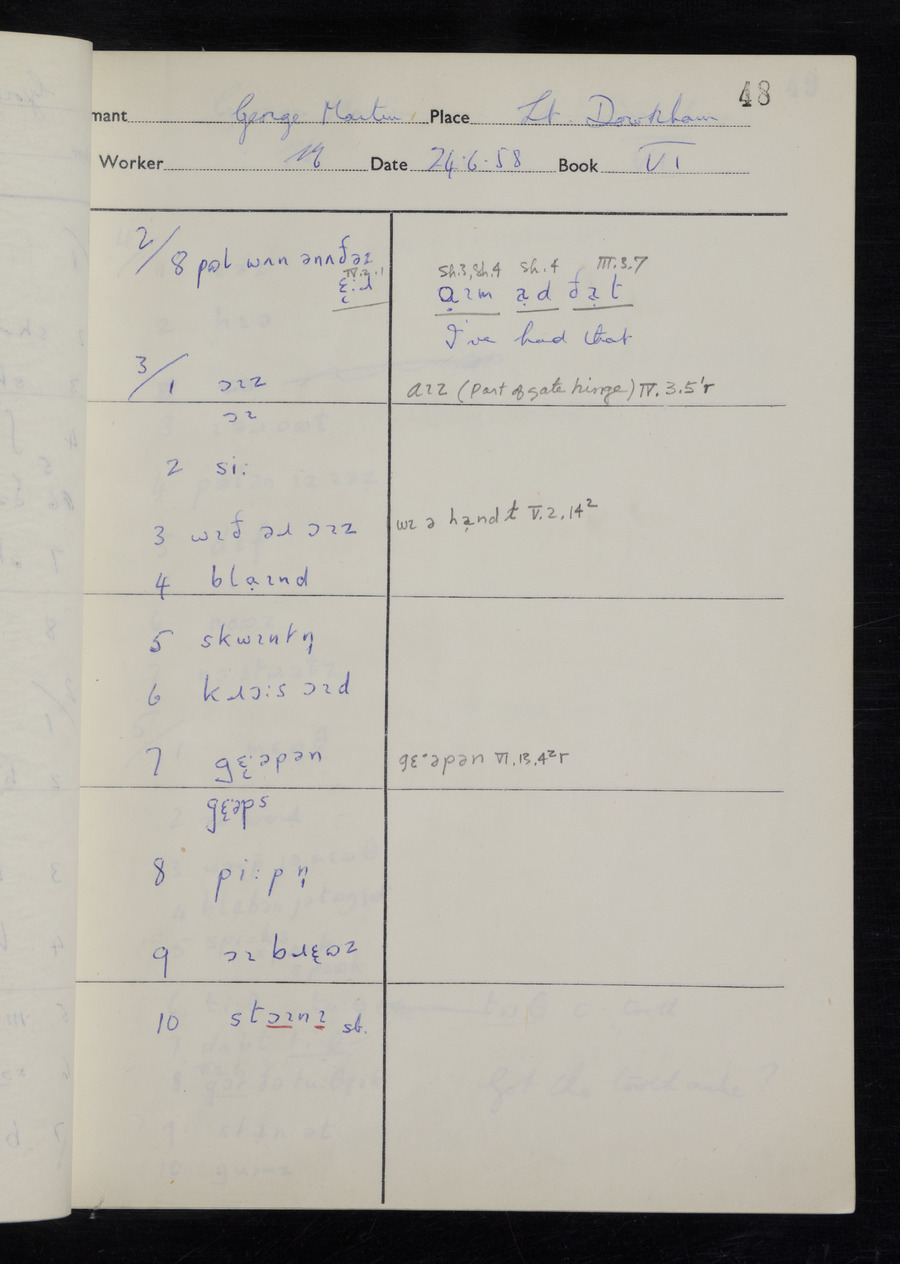 48
mant George Martin Place Lt. Downham
Worker M Date 24.6.58 Book VI
2/8 pʊl wʌn ənʌðəz
IV.2.1
ɛ̣:ɹ
sh.3, sh.4 sh.4 III.3.7
ạɪm ạd ðạt
I've had that
3/1 ɔɪz aɪz (part of gate hinge) IV.3.5'r
ɔɪ
2 si:
3 wɪð əɹ ɔɪz wɪ ə hạndt V.2.14²
4 blạɪnd
5 skwɪntn̩
6 kɹɔ:s ɔɪd
7 gɛ̣:əpən gɛ·əpən VI.13.4²r
gɛ̣:əps
8 pi:pn̩
9 ɔɪ bɹɛʊz
10 stɔɪnɪ sb.